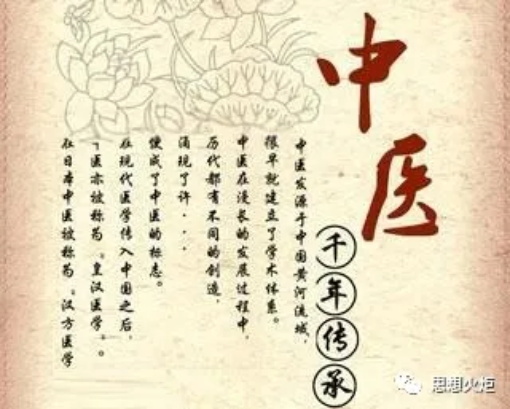 中医
千年传承
中医发源于中国黄河流域，
很早就建立了学术体系。
中医在漫长的发展过程中，
历代都有不同的创造，
涌现了许...
便成了中医的标志。
在现代医学传入中国之后，
「医亦被称为。皇汉医学。。
在日本中医被称为。汉方医学
思想火炬